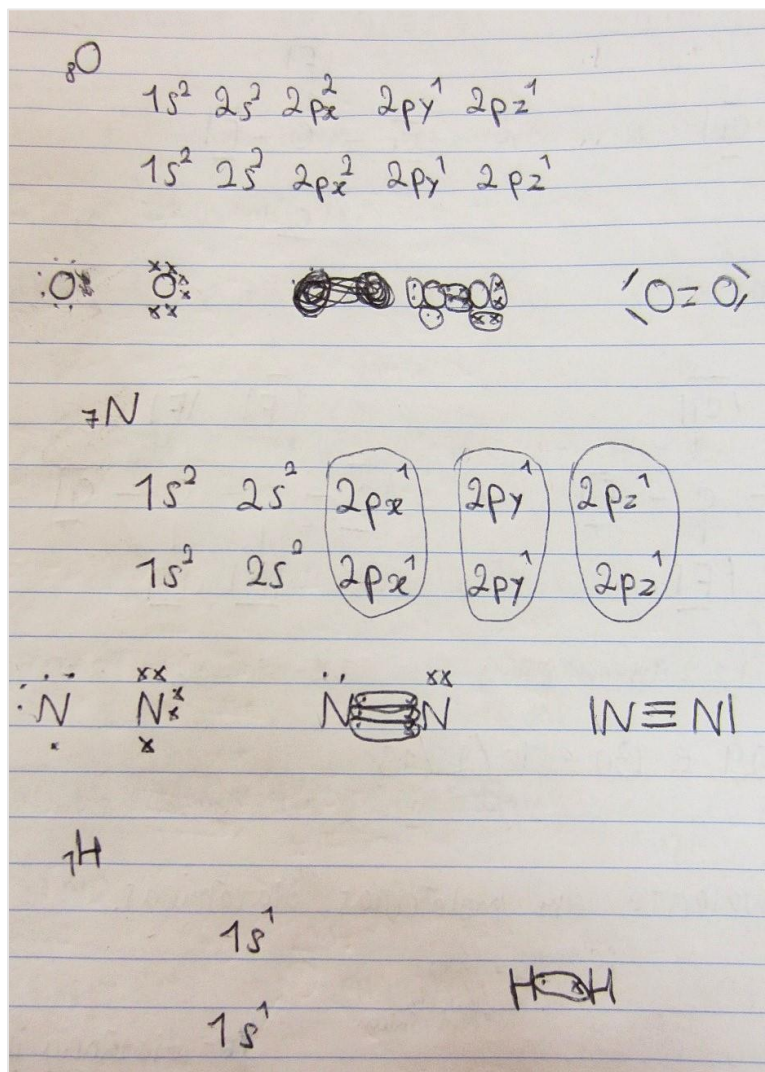 ₈O
1s² 2s² 2px² 2py¹ 2pz¹
1s² 2s² 2px² 2py¹ 2pz¹
O O O O O = O
₇N
1s² 2s² 2px¹ 2py¹ 2pz¹
1s² 2s² 2px¹ 2py¹ 2pz¹
N N N N |N ≡ N|
₁H
1s¹
H H
1s¹